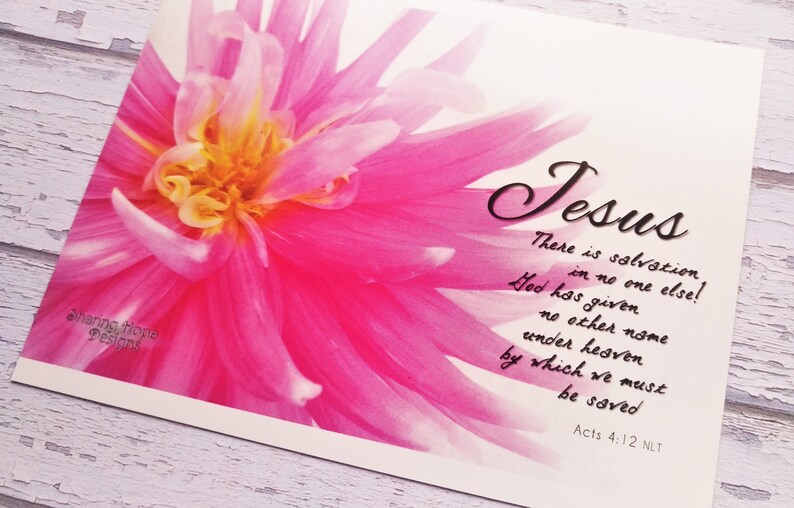 Jesus
There is salvation
in no one else!
God has given
no other name
under heaven
by which we must
be saved
Acts 4:12 NLT
Sharing Hope
Designs